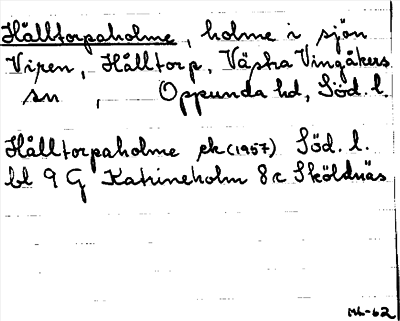 Hålltorpaholme, holme i sjön
Viren, Hålltorp, Västra Vingåkers
sn , Oppunda hd, Söd. l.
Hålltorpaholme ek (1957) Söd. l.
bl 9 G Katrineholm 8c Sköldnäs
ML-62